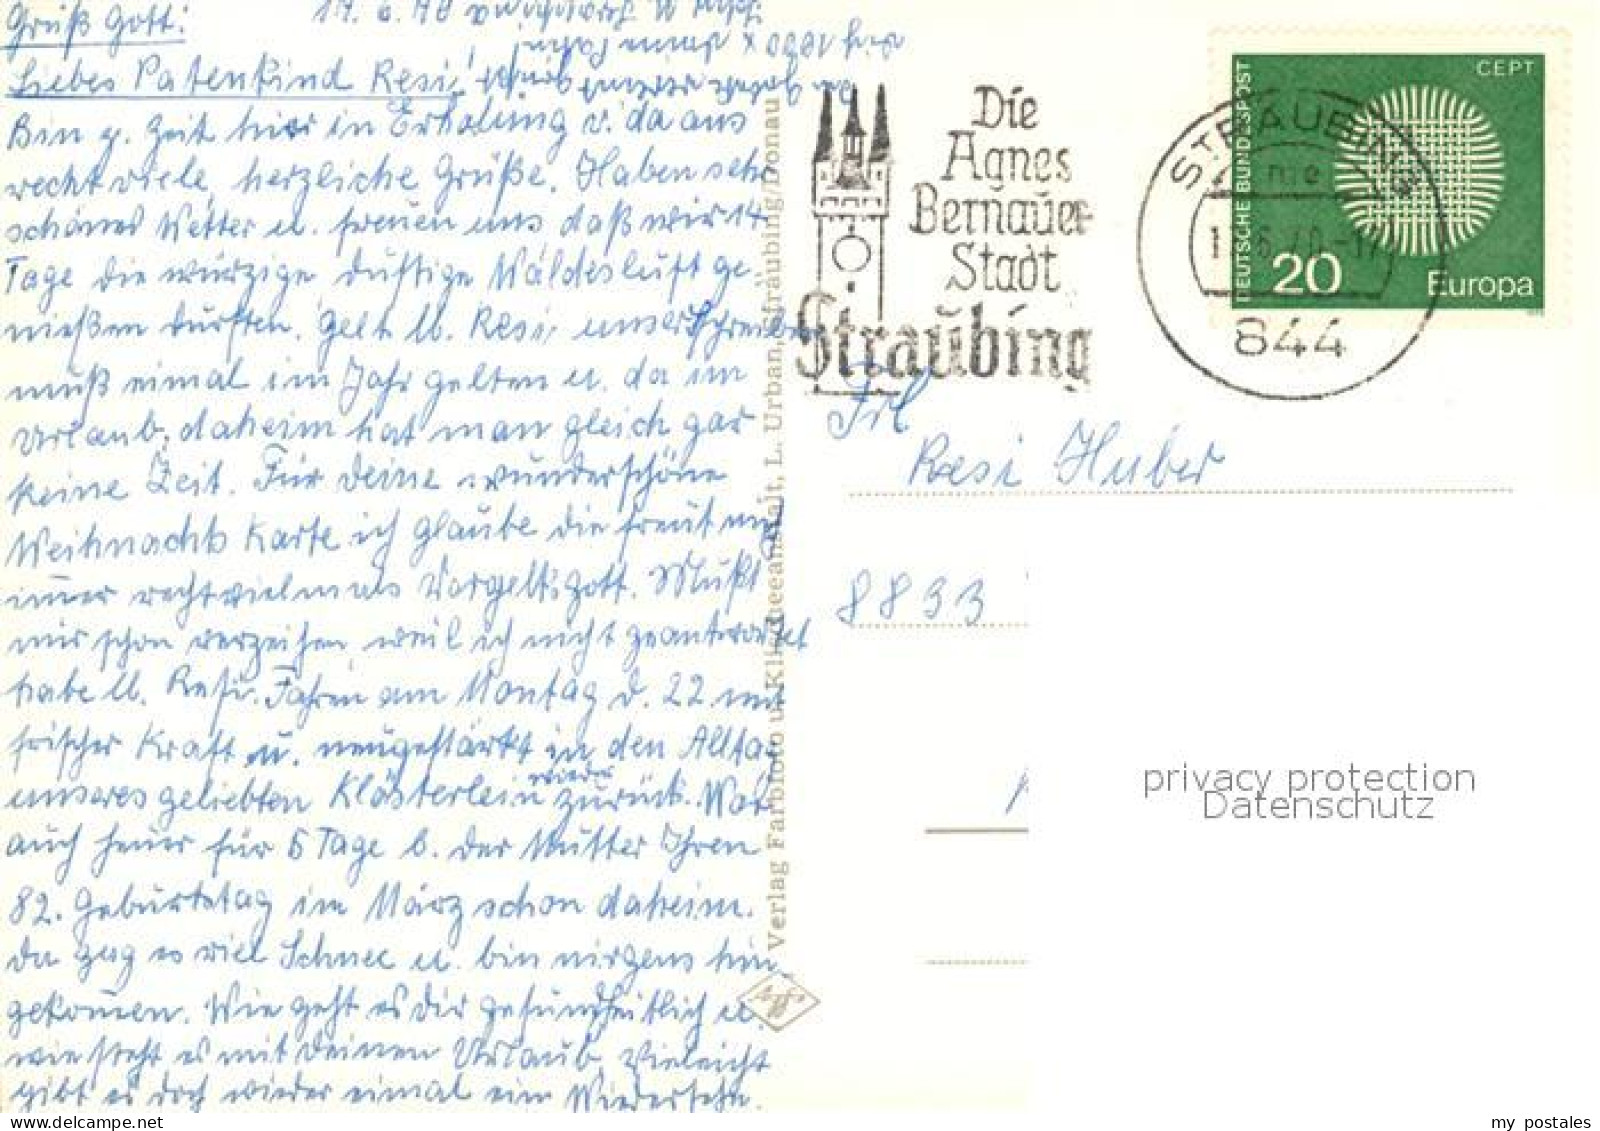 Grüß Gott!
17. 6. 70
Liebes Patenkind Resi!
Bin z. Zeit hier in Erholung u. da aus
recht viele, herzliche Grüße. Haben sehr
schönes Wetter u. freuen uns daß wir 14
Tage die würzige duftige Waldesluft ge-
nießen durften. Gelt lb. Resi, unser Schreiben
muß einmal im Jahr gelten u. da im
Urlaub, daheim hat man gleich gar
keine Zeit. Für deine wunderschöne
Weihnachts Karte ich glaube die freut mich
immer recht vielmals Vergelts Gott. Mußt
mir schon verzeihen weil ich nicht geantwortet
habe lb. Resi. Fahren am Montag d. 22. mit
frischer Kraft u. neugestärkt in den Alltag
unseres geliebten Klösterlein wieder zurück. War
auch heuer für 5 Tage b. der Mutter Ihren
82. Geburtstag im März schon daheim.
Da zug es viel Schnee u. bin nirgens hin
gekommen. Wie geht es dir gesundheitlich u.
wie steht es mit deinen Urlaub, vieleicht
gibt es doch wieder einmal ein Wiedersehn.
Verlag Farbfoto u. Klischeeanstalt, L. Urban, Straubing/Donau
Die
Agnes
Bernauer
Stadt
Straubing
STRAUBING
844
DEUTSCHE BUNDESPOST
CEPT
20
Europa
Frl
Resi Huber
8833
privacy protection
Datenschutz
my postales